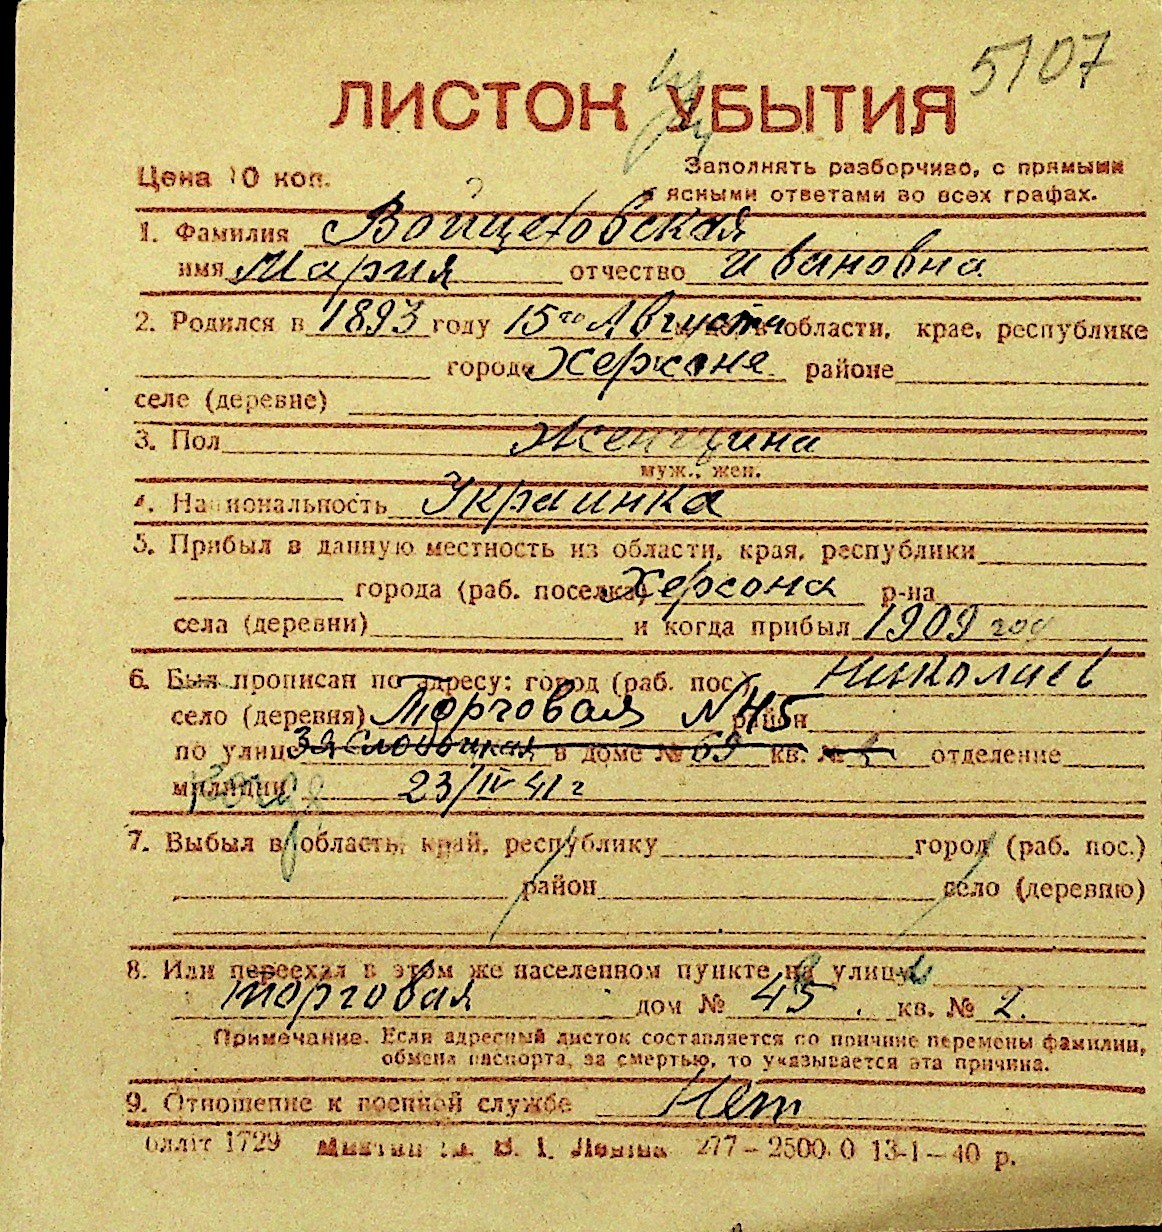 5107
ЛИСТОК УБЫТИЯ
Цена 10 коп.
Заполнять разборчиво, с прямыми
ясными ответами во всех графах.
1. Фамилия Войцеховская
имя Мария отчество Ивановна
2. Родился в 1893 году 15го Августа в области, крае, республике
городе Херсоне районе
селе (деревне)
3. Пол Женщина
муж., жен.
4. Национальность Украинка
5. Прибыл в данную местность из области, края, республики
города (раб. поселка) Херсона р-на
села (деревни) и когда прибыл 1909 год
6. Был прописан по адресу: город (раб. пос.) Николаев
село (деревня) Торговая N 45 район
по улице 3я Слободская в доме № 69 кв. № 1 отделение
милиции 23/IV 41 г
7. Выбыл в область, край, республику город (раб. пос.)
район село (деревню)
8. Или переехал в этом же населенном пункте на улицу
торговая дом № 45. кв. № 2.
Примечание. Если адресный листок составляется по причине перемены фамилии,
обмена паспорта, за смертью, то указывается эта причина.
9. Отношение к военной службе Нет
1729 277–2500.0 13-1–40 р.